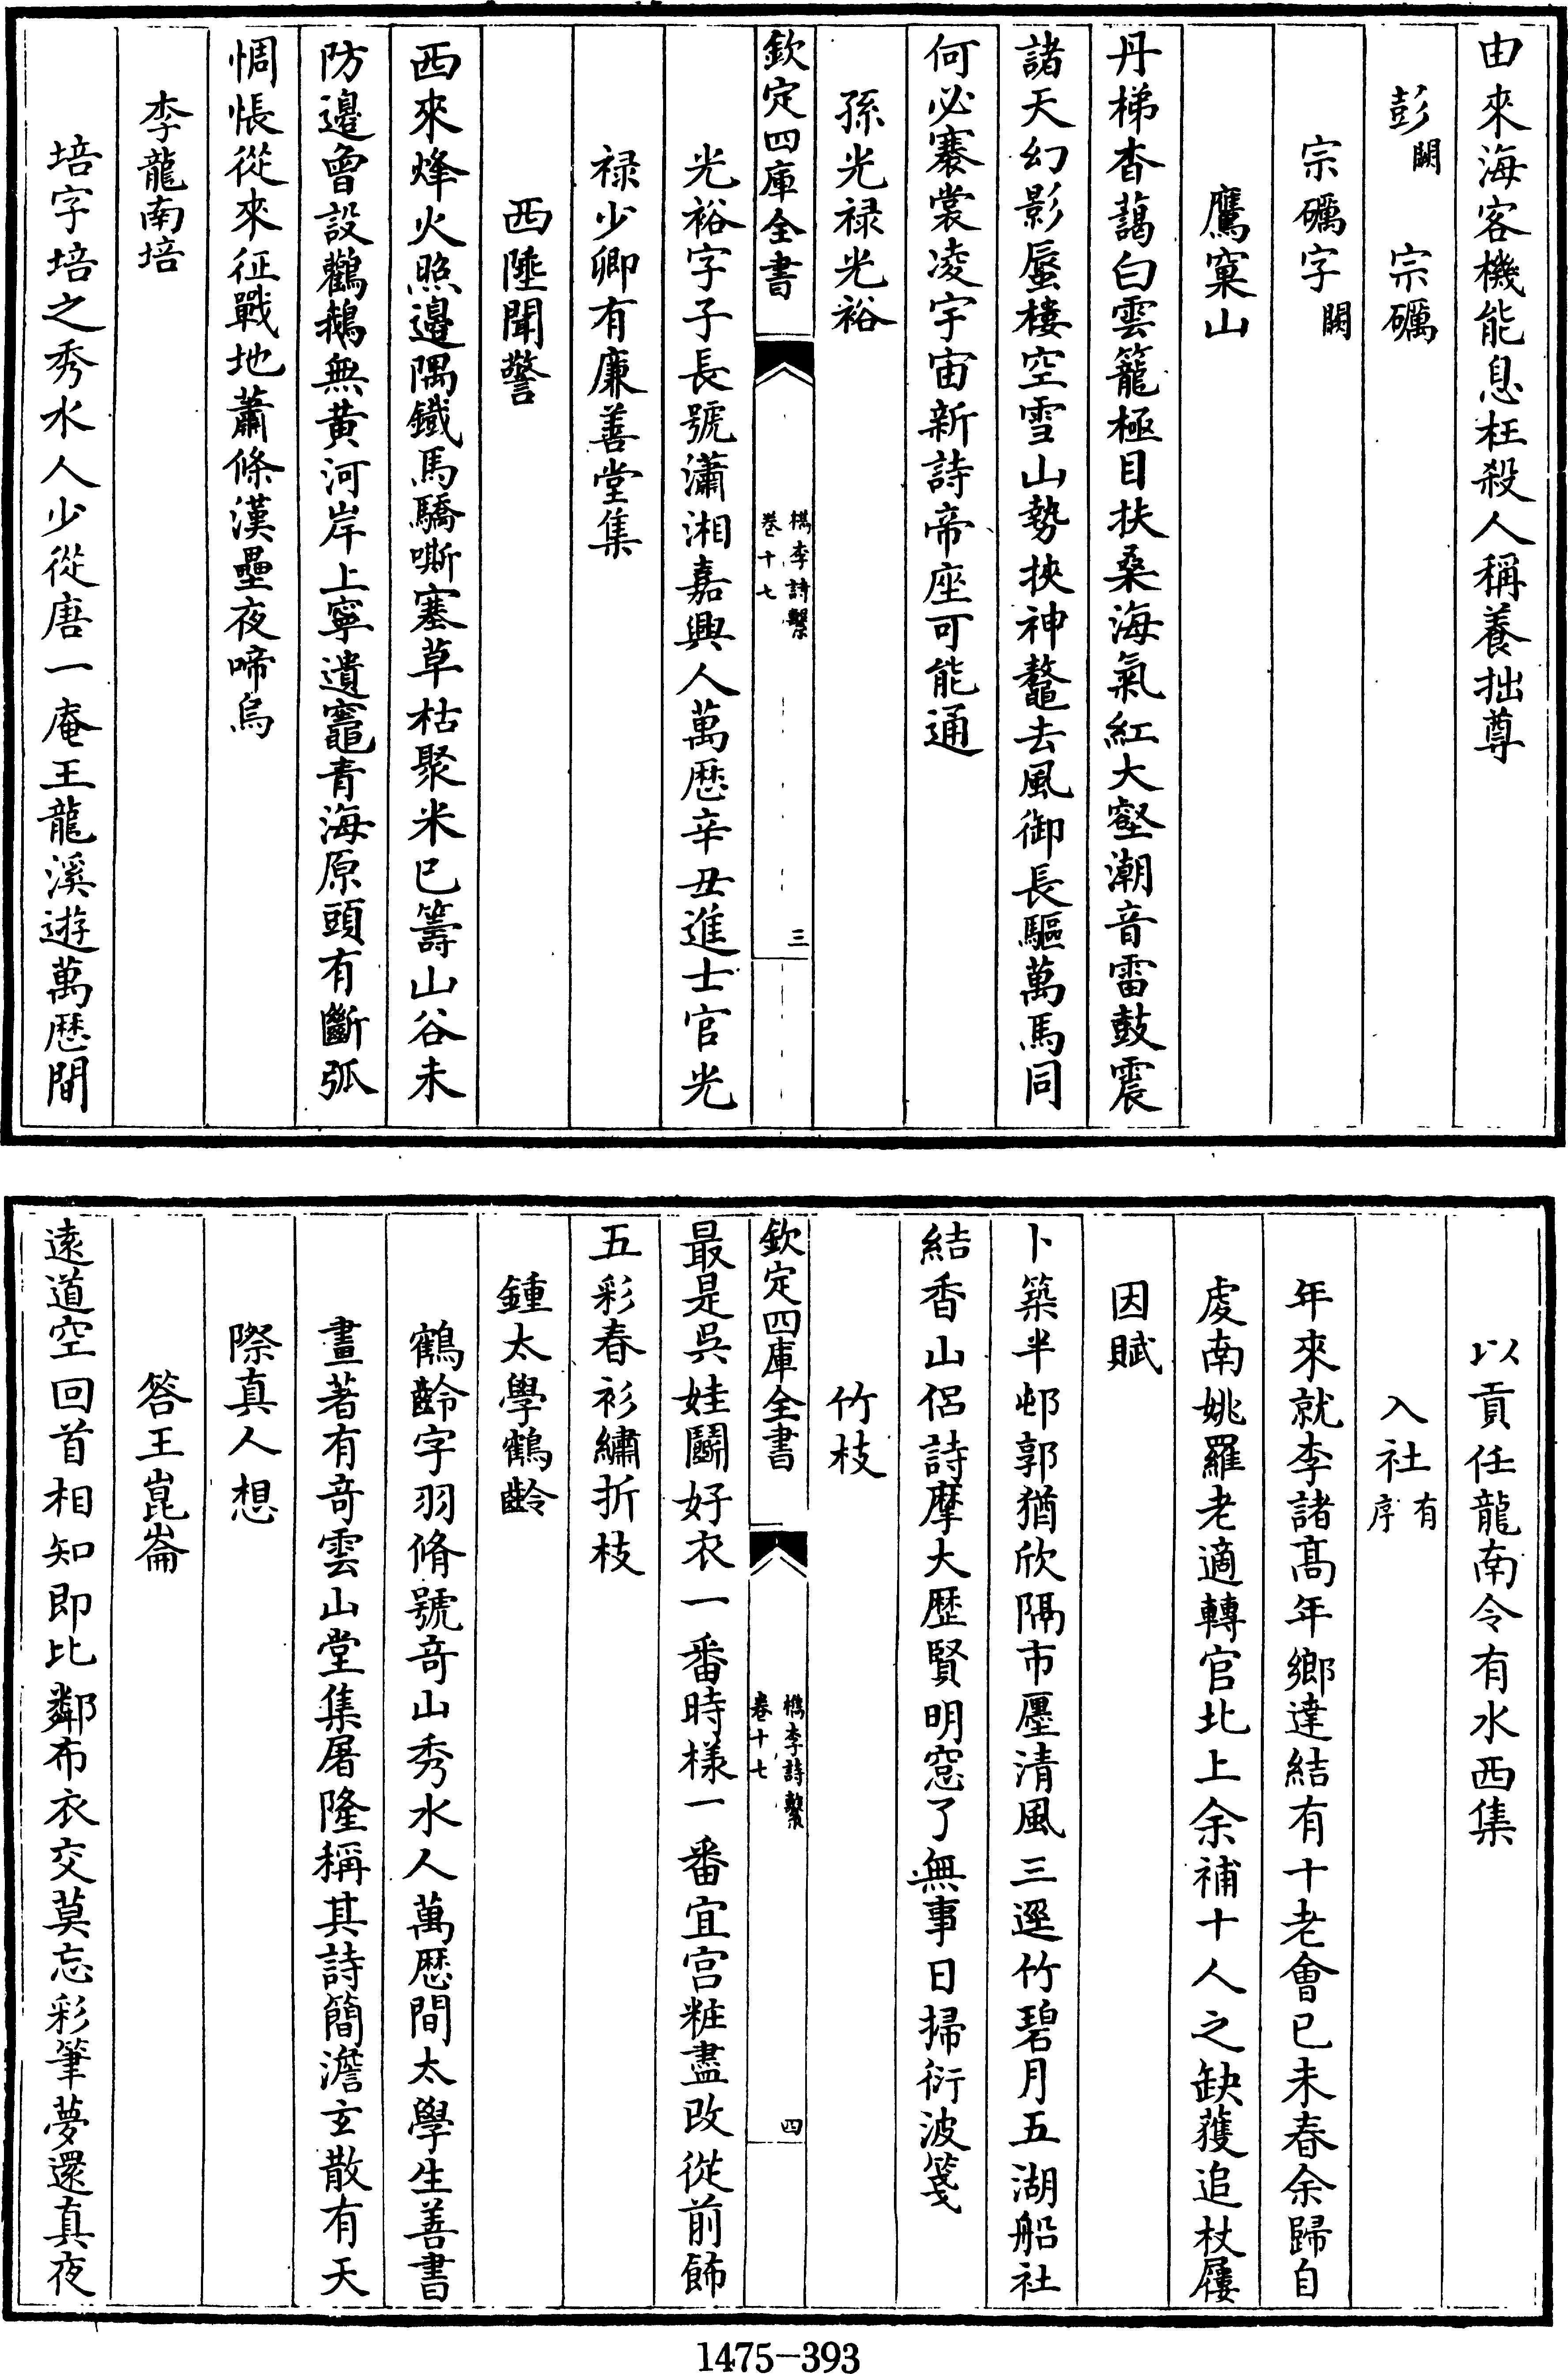 由來海客機能息枉殺人稱養拙尊
彭闕　宗礪
宗礪字闕
鷹窠山
丹梯杳藹白雲籠極目扶桑海氣紅大壑潮音雷鼓震
諸天幻影蜃樓空雪山勢挾神鼇去風御長驅萬馬同
何必褰裳凌宇宙新詩帝座可能通
孫光禄光裕
欽定四庫全書
檇李詩繫
卷十七
三
光裕字子長號瀟湘嘉興人萬歷辛丑進士官光
禄少卿有廉善堂集
西陲聞警
西來烽火照邉隅鐵馬驕嘶塞草枯聚米已籌山谷未
防邉曾設鸛鵝無黄河岸上寧遺竈青海原頭有斷弧
惆悵從來征戰地蕭條漢壘夜啼烏
李龍南培
培字培之秀水人少從唐一庵王龍溪遊萬歷間
以貢任龍南令有水西集
入社有序
年來就李諸髙年鄉達結有十老會已未春余歸自
虔南姚羅老適轉官北上余補十人之缺獲追杖屨
因賦
卜築半邨郭猶欣隔市廛清風三逕竹碧月五湖船社
結香山侣詩摩大歷賢明窓了無事日掃衍波箋
竹枝
欽定四庫全書
檇李詩繫
卷十七
四
最是吳娃鬬好衣一番時様一番宜宫粧盡改從前飾
五彩春衫繡折枝
鍾太學鶴齡
鶴齡字羽脩號竒山秀水人萬歷間太學生善書
畫著有竒雲山堂集屠隆稱其詩簡澹玄散有天
際真人想
答王崑崙
逺道空回首相知即比鄰布衣交莫忘彩筆夢還真夜
1475-393